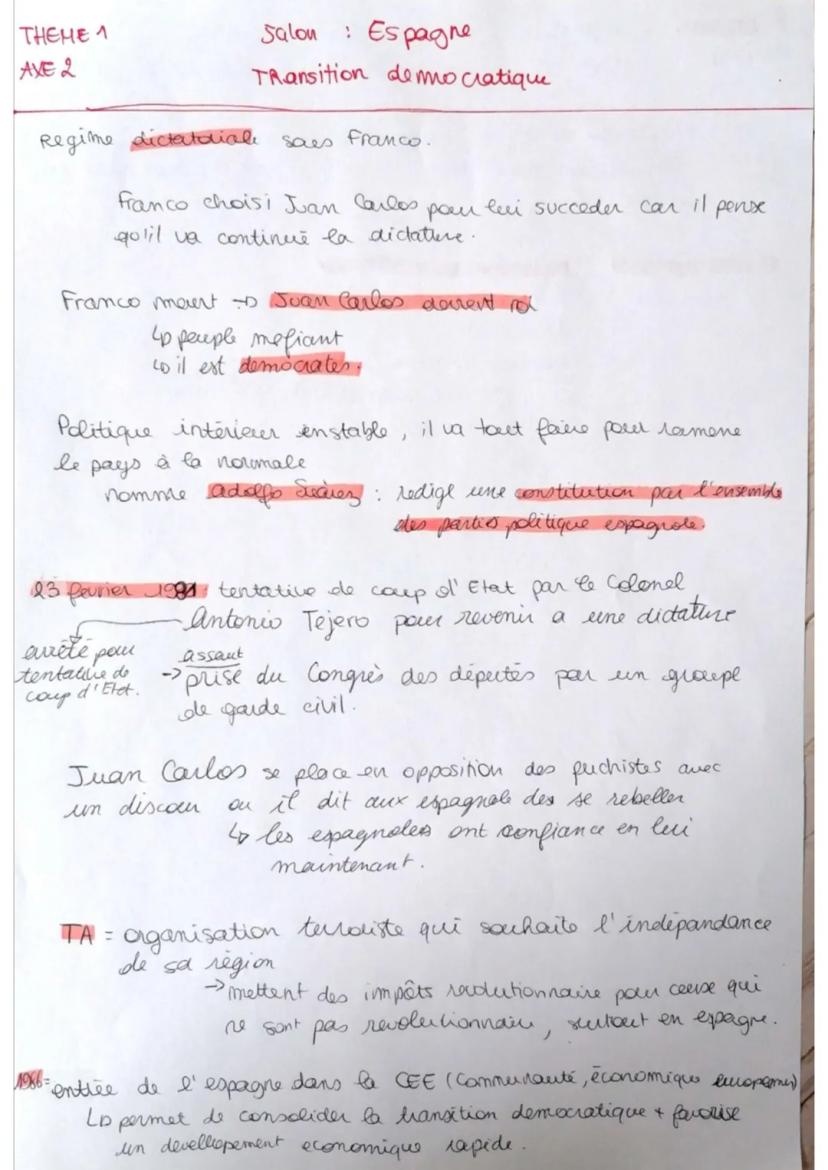 THEME 1
Salon : Espagne
AXE 2
TRansition democratique
Regime dictatoriale sous Franco.
Franco choisi Juan Carlos pour lui succeder car il pense
qu'il va continué la dictature.
Franco meurt → Juan Carlos devient roi
↳ peuple mefiant
↳ il est democrates.
Politique intérieur instable, il va tout faire pour ramene
le pays à la normale
nomme adolfo Suàrez : redigé une constitution par l'ensemble
des partis politique espagnole.
23 fevrier 1981 : tentative de coup d'Etat par le Colonel
Antonio Tejero pour revenir a une dictature
arrêté pour
tentative de
coup d'Etat.
assaut
→ prise du Congrès des députés par un groupe
de garde civil.
Juan Carlos se place en opposition des puchistes avec
un discour ou il dit aux espagnole des se rebeller
↳ les espagnoles ont confiance en lui
maintenant.
TA = organisation terroriste qui souhaite l'indépandance
de sa région
→ mettent des impôts revolutionnaire pour ceux qui
ne sont pas revolutionnaire, surtout en espagne.
1986 = entrée de l'espagne dans la CEE (Communauté, économique europenne)
↳ permet de consolider la transition democratique + favorise
un devellopement economique rapide.